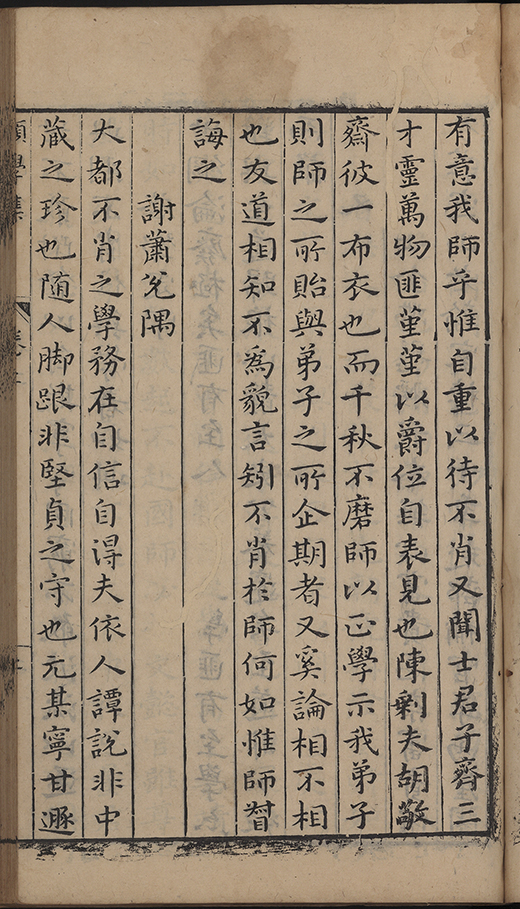 有意我師乎惟自重以待不肖又聞士君子齊三
才靈萬物匪堇堇以爵位自表見也陳剩夫胡敬
齋彼一布衣也而千秋不磨師以正學示我弟子
則師之所貽與弟子之所企期者又奚論相不相
也友道相知不為貌言矧不肖於師何如惟師督
誨之
謝蕭兌隅
大都不肖之學務在自信自得夫依人譚說非中
藏之珍也随人脚跟非堅貞之守也元某寧甘遯
願學集